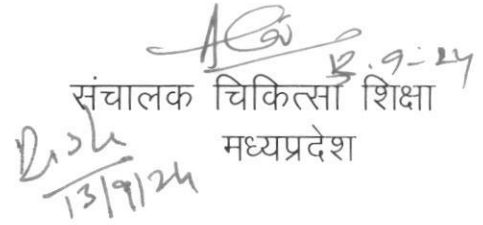 12.9-24
संचालक चिकित्सा शिक्षा
मध्यप्रदेश
13/9/24